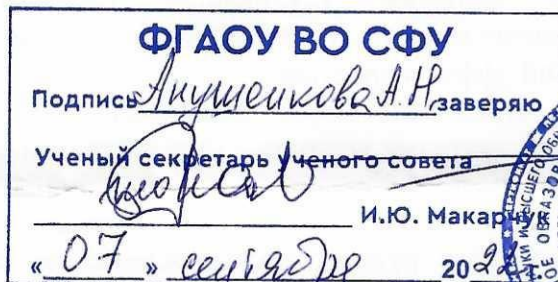 ФГАОУ ВО СФУ
Подпись Анушенкова А.Н. заверяю
Ученый секретарь ученого совета
И.Ю. Макарчук
« 07 » сентября 20